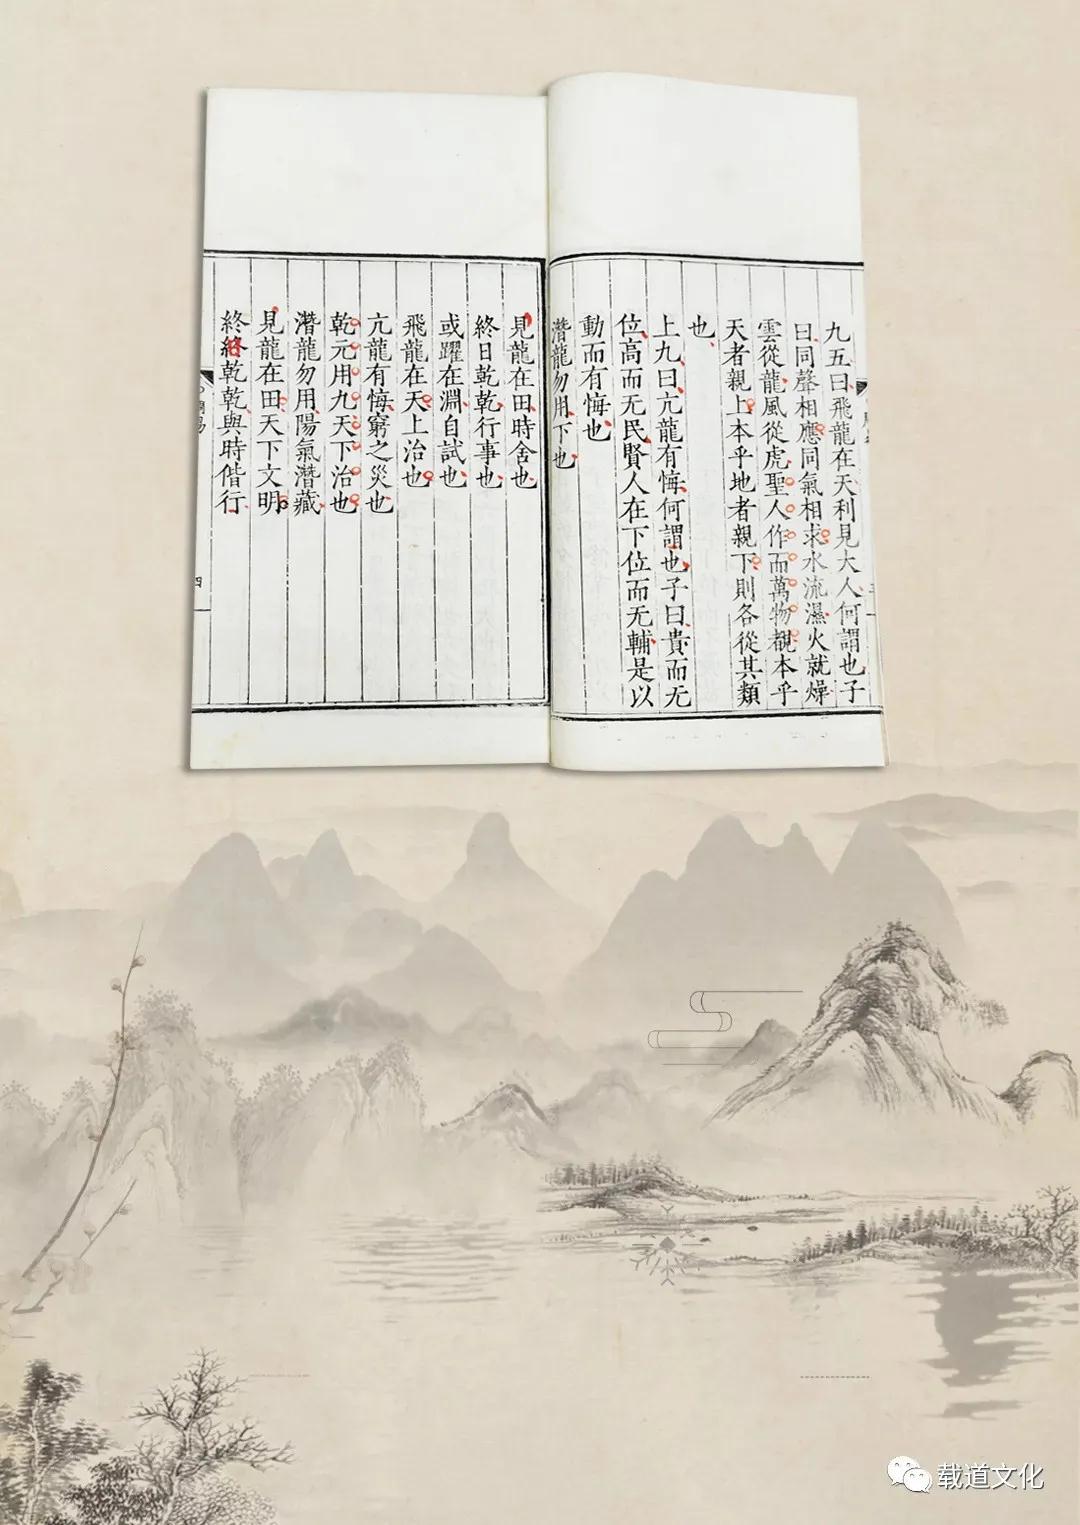 九五曰飛龍在天利見大人何謂也子
曰同聲相應同氣相求水流濕火就燥
雲從龍風從虎聖人作而萬物覩本乎
天者親上本乎地者親下則各從其類
也
上九曰亢龍有悔何謂也子曰貴而无
位高而无民賢人在下位而无輔是以
動而有悔也
潛龍勿用下也
見龍在田時舍也
終日乾乾行事也
或躍在淵自試也
飛龍在天上治也
亢龍有悔窮之災也
乾元用九天下治也
潛龍勿用陽氣潛藏
見龍在田天下文明
終日乾乾與時偕行
四
载道文化